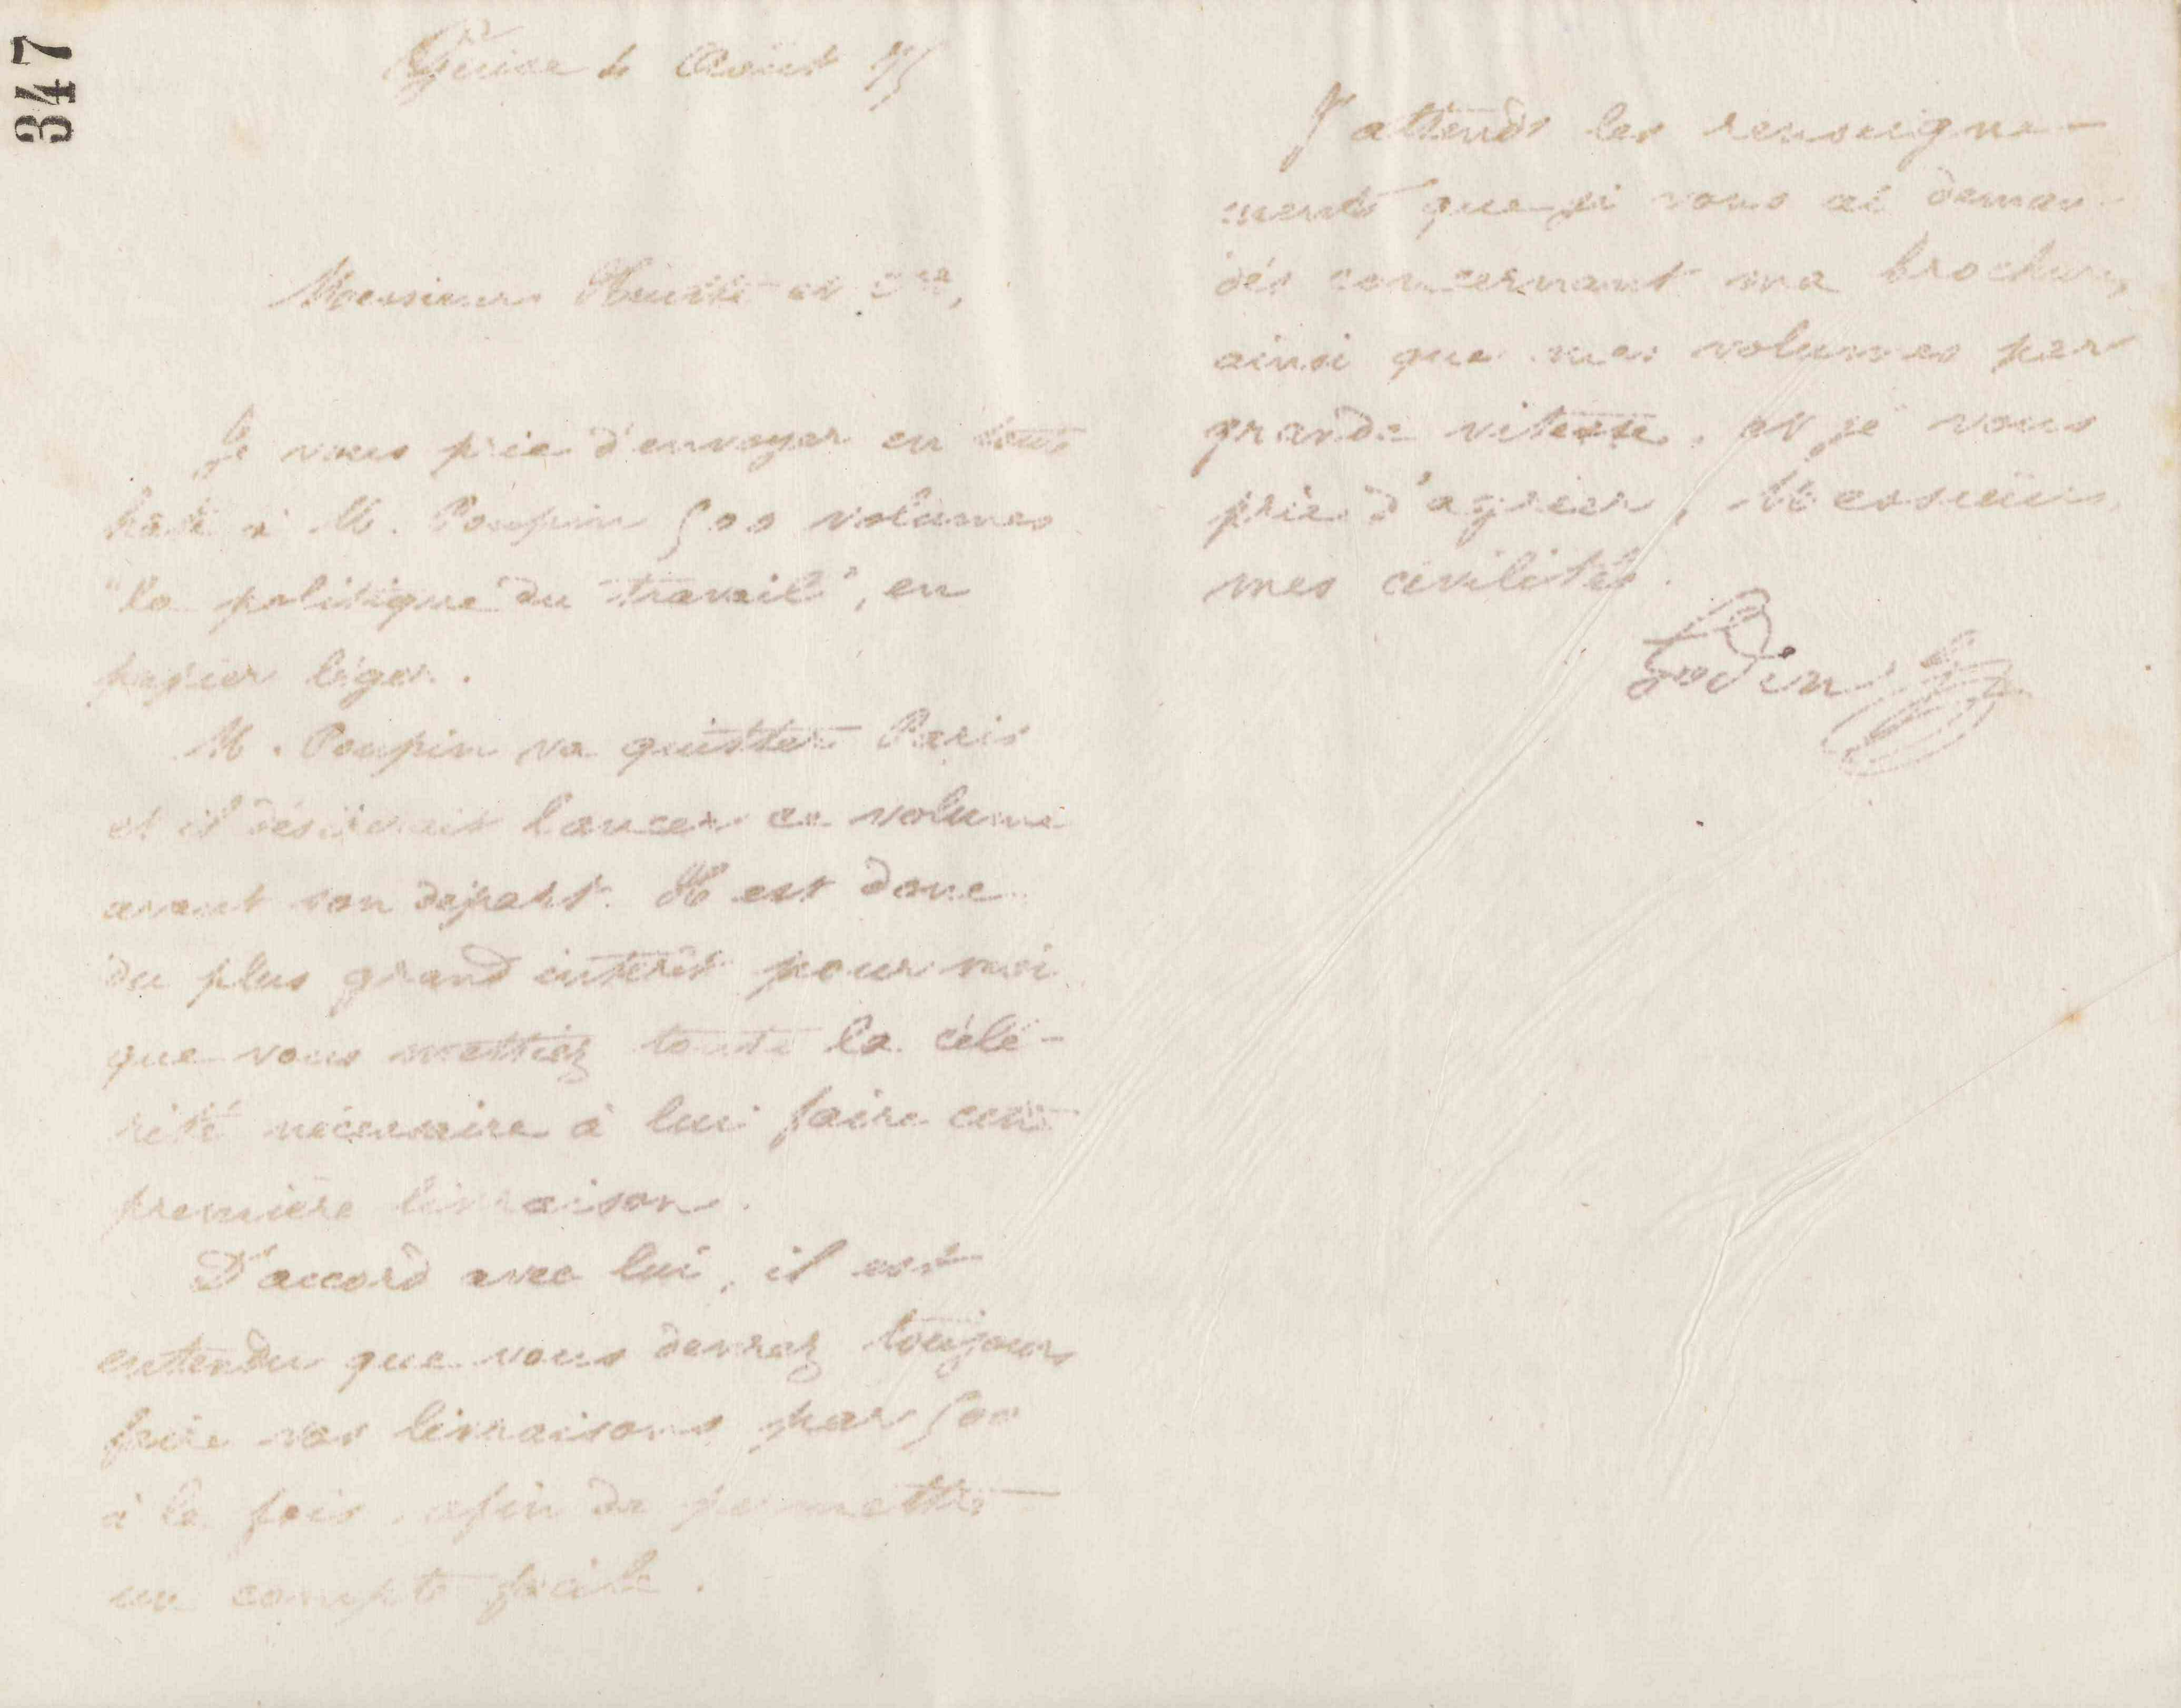 347
Guise 4 Août 75
Messieurs et Cie,
Je vous prie d'envoyer en toute
hâte à M. Poupin 500 volumes
"la politique du travail", en
papier léger.
M. Poupin va quitter Paris
et il désirerait lancer ce volume
avant son départ. Il est donc
du plus grand intérêt pour moi
que vous mettiez toute la célé-
rité nécessaire à lui faire cette
première livraison.
D'accord avec lui, il est
entendu que vous devrez toujours
faire vos livraisons par 500
à la fois, afin de permettre
un compte facile.
J'attends les renseigne-
ments que je vous ai deman-
dés concernant ma brochure,
ainsi que mes volumes par
grande vitesse, et je vous
prie d'agréer, Messieurs,
mes civilités.
Godin